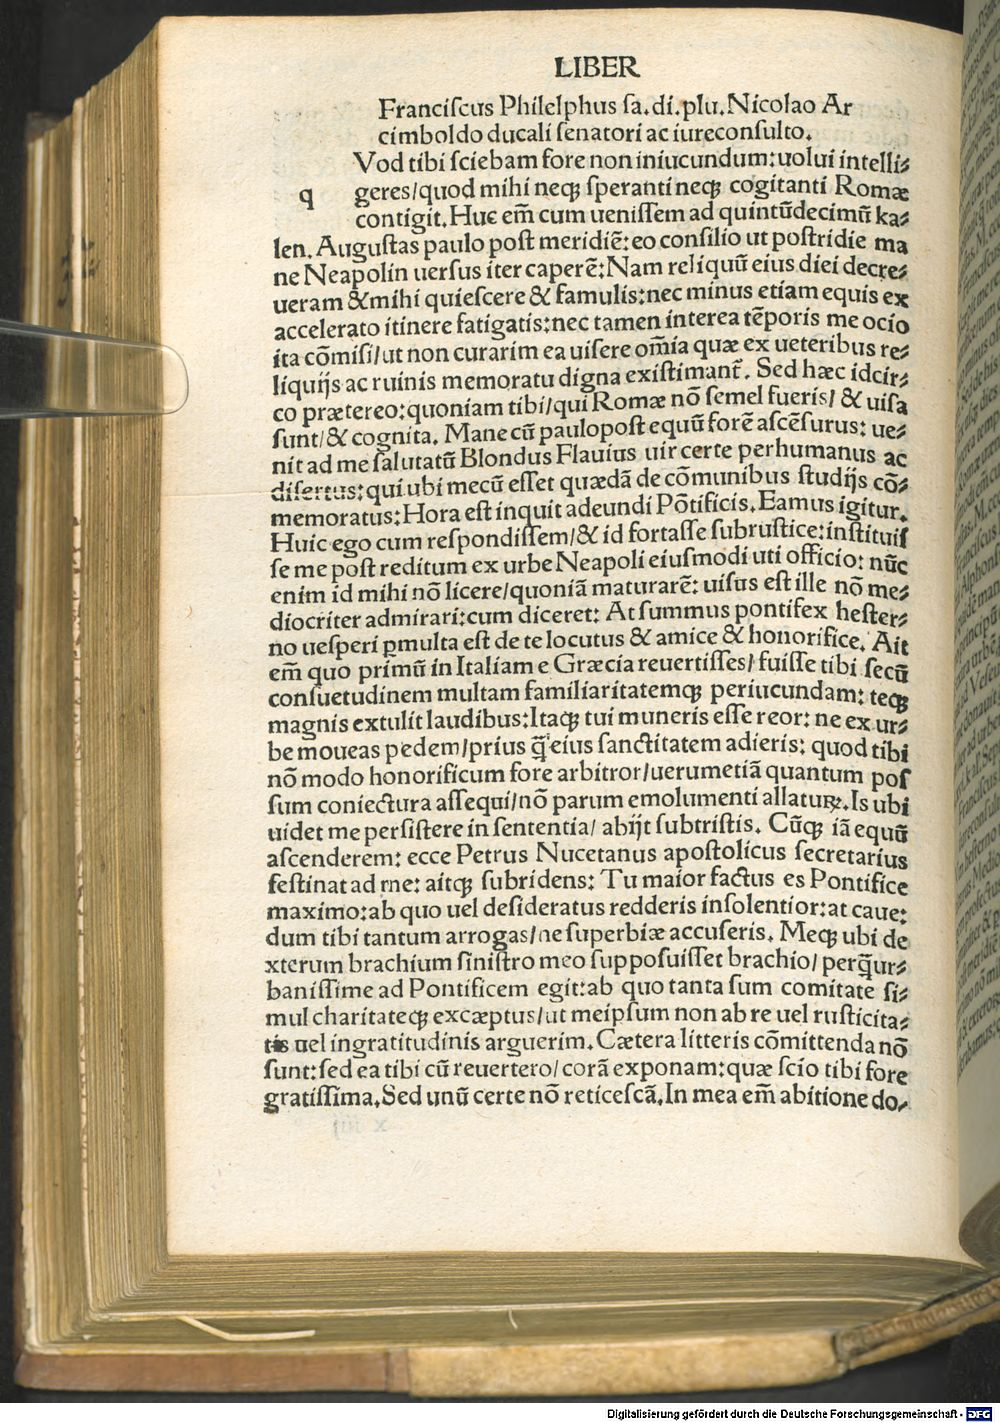 LIBER
Franciſcus Philelphus ſa. di. plu. Nicolao Ar
cimboldo ducali ſenatori ac iureconſulto.
Vod tibi ſciebam fore non iniucundum: uolui intelli⸗
q geres/quod mihi neqꝫ ſperanti neqꝫ cogitanti Romæ
contigit. Huc em̄ cum ueniſſem ad quintūdecimū ka⸗
len. Auguſtas paulo poſt meridiē: eo conſilio ut poſtridie ma
ne Neapolin uerſus iter caperē: Nam reliquū eius diei decre⸗
ueram & mihi quieſcere & famulis: nec minus etiam equis ex
accelerato itinere fatigatis: nec tamen interea tēporis me ocio
ita cōmiſi/ut non curarim ea uiſere om̄ia quæ ex ueteribus re⸗
liquijs ac ruinis memoratu digna exiſtimant̄. Sed hæc idcir⸗
co prætereo: quoniam tibi/qui Romæ nō ſemel fueris/ & uiſa
ſunt/& cognita. Mane cū paulopoſt equū forē aſcēſurus: ue⸗
nit ad me ſalutatū Blondus Flauius uir certe perhumanus ac
diſertus: qui ubi mecū eſſet quædā de cōmunibus ſtudijs cō⸗
memoratus: Hora eſt inquit adeundi Pōtificis. Eamus igitur.
Huic ego cum reſpondiſſem/& id fortaſſe ſubruſtice: inſtituiſ
ſe me poſt reditum ex urbe Neapoli eiuſmodi uti officio: nūc
enim id mihi nō licere/quoniā maturarē: uiſus eſt ille nō me⸗
diocriter admirari: cum diceret: At ſummus pontifex heſter⸗
no ueſperi ꝑmulta eſt de te locutus & amice & honorifice. Ait
em̄ quo primū in Italiam e Græcia reuertiſſes/ fuiſſe tibi ſecū
conſuetudinem multam familiaritatemqꝫ periucundam: teqꝫ
magnis extulit laudibus: Itaqꝫ tui muneris eſſe reor: ne ex ur⸗
be moueas pedem/prius q̄ eius ſanctitatem adieris: quod tibi
nō modo honorificum fore arbitror/uerumetiā quantum poſ
ſum coniectura aſſequi/nō parum emolumenti allaturꝝ. Is ubi
uidet me perſiſtere in ſententia/ abijt ſubtriſtis. Cūqꝫ iā equū
aſcenderem: ecce Petrus Nucetanus apoſtolicus ſecretarius
feſtinat ad me: aitqꝫ ſubridens: Tu maior factus es Pontifice
maximo: ab quo uel deſideratus redderis inſolentior: at caue:
dum tibi tantum arrogas/ne ſuperbiæ accuſeris. Meqꝫ ubi de
xterum brachium ſiniſtro meo ſuppoſuiſſet brachio/ perq̄ur⸗
baniſſime ad Pontificem egit: ab quo tanta ſum comitate ſi⸗
mul charitateqꝫ excæptus/ut meipſum non ab re uel ruſticita⸗
tis uel ingratitudinis arguerim. Cætera litteris cōmittenda nō
ſunt: ſed ea tibi cū reuertero/ corā exponam: quæ ſcio tibi fore
gratiſſima. Sed unū certe nō reticeſcā. In mea em̄ abitione do⸗
Digitalisierung gefördert durch die Deutsche Forschungsgemeinschaft - DFG